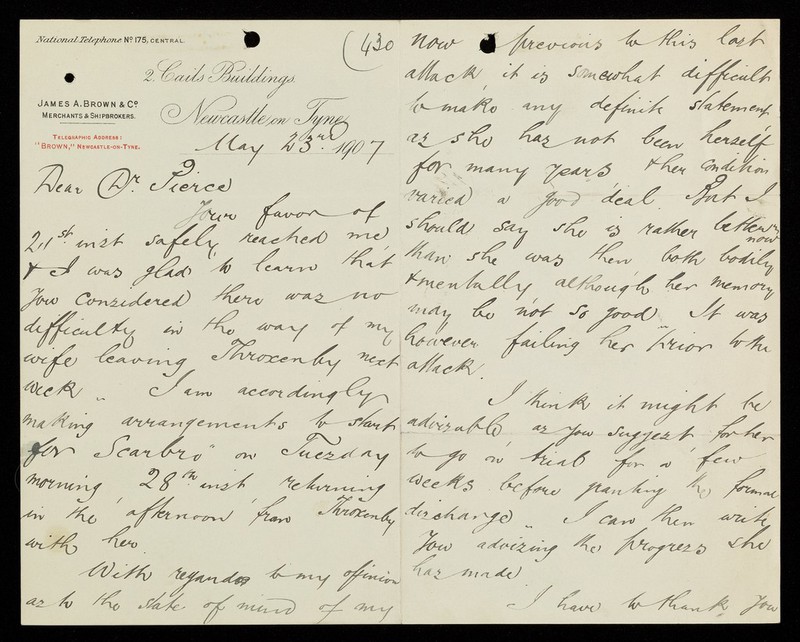 National Telephone Nº 175, CENTRAL.
(430
2 Cails Buildings.
JAMES A. BROWN & Cº
MERCHANTS & SHIPBROKERS.
Newcastle on Tyne
TELEGRAPHIC ADDRESS:
"BROWN," NEWCASTLE-ON-TYNE.
May 23rd. 1907
Dear Dr. Pierce
Your favor of
21st. inst safely reached me
& I was glad to learn that
you considered there was no
difficulty in the way of my
wife leaving Throxenby next
week. I am accordingly
making arrangements to start
for Scarbro' on Tuesday
morning 28th inst returning
in the afternoon from Throxenby
with her.
With regards to my opinion
as to the state of mind of my
now previous to this last
attack, it is somewhat difficult
to make any definite statement
as she has not been herself
for many years & her condition
varied a good deal. But I
should say she is rather better
now
than she was then both bodily
& mentally although her memory
may be not so good. It was
however failing her prior to the
attack.
I think it might be
advisable as you suggest for her
to go on trial for a few
weeks before granting the formal
discharge. I can then write
you advising the progress she
has made.
I have to thank you